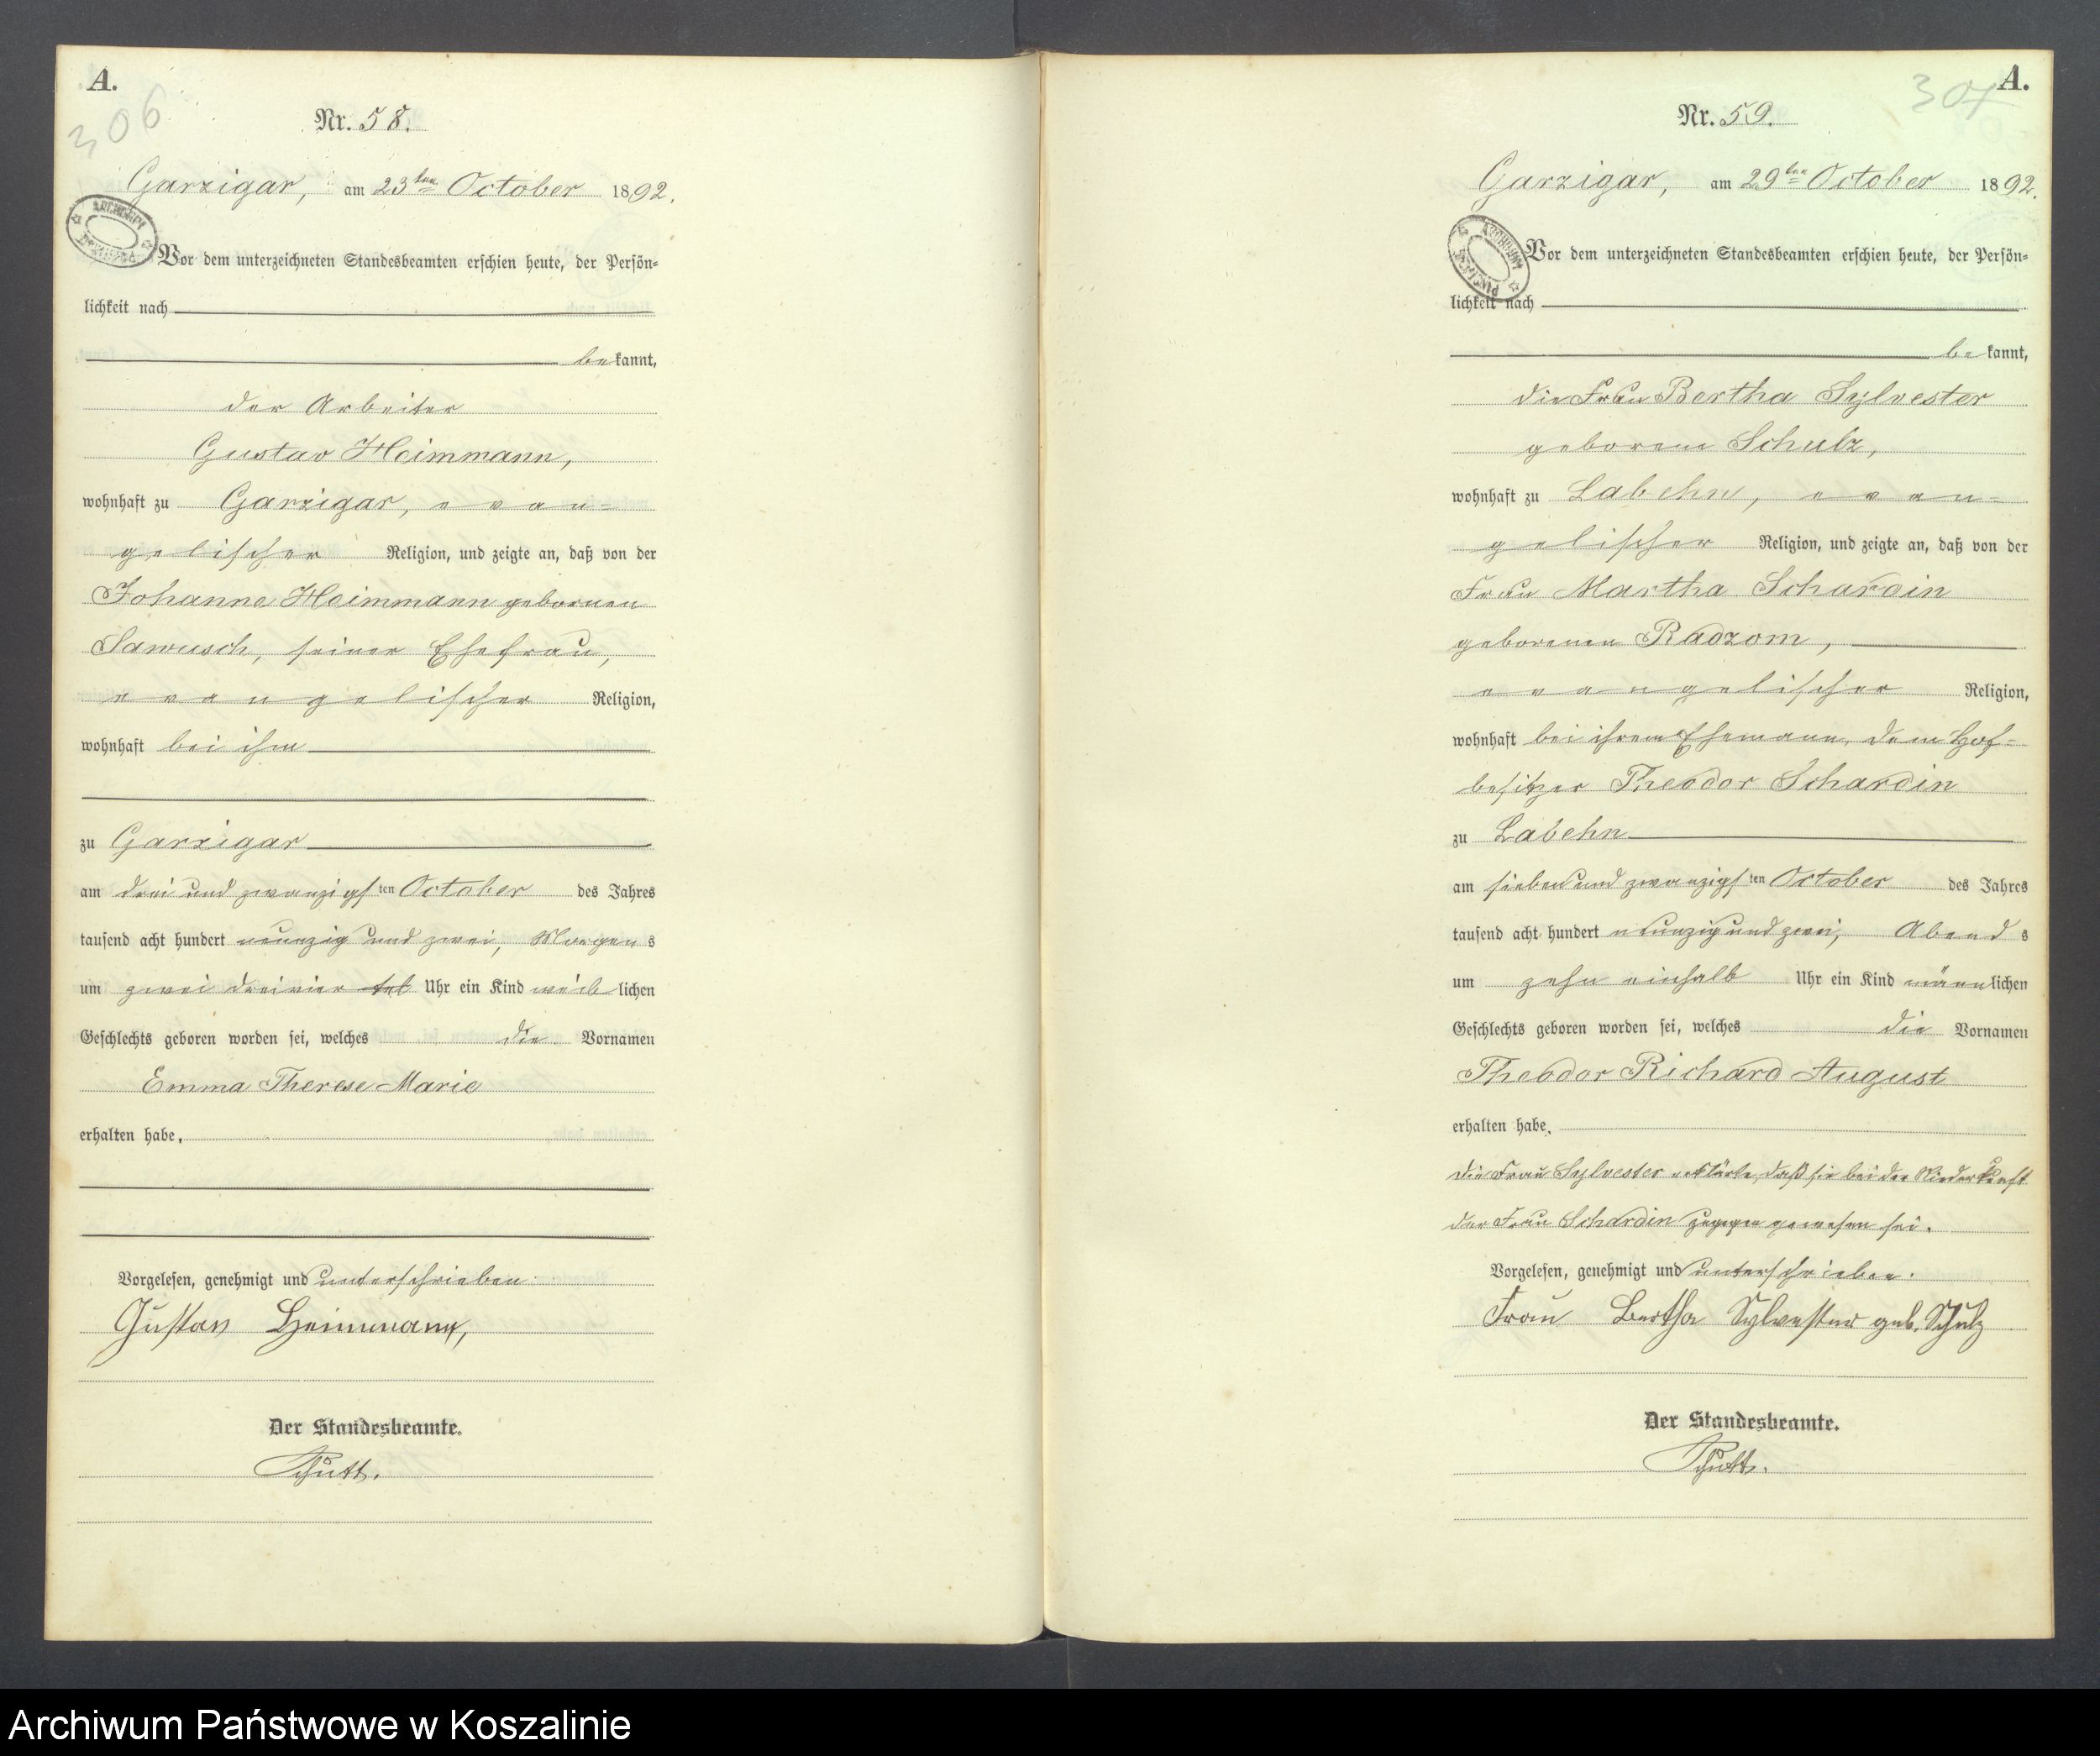 A.
306
Nr. 58.
Garzigar, am 23ten October 1892.
Vor dem unterzeichneten Standesbeamten erschien heute, der Persön=
lichkeit nach
bekannt,
der Arbeiter
Gustav Heimmann,
wohnhaft zu Garzigar, evan=
gelischer Religion, und zeigte an, daß von der
Johanne Heimmann gebornen
seiner Ehefrau,
evangelischer Religion,
wohnhaft bei ihm
zu Garzigar
am drei und zwanzigsten October des Jahres
tausend acht hundert neunzig und zwei, Morgens
um zwei dreiviertel Uhr ein Kind weiblichen
Geschlechts geboren worden sei, welches die Vornamen
Emma Therese Marie
erhalten habe.
Vorgelesen, genehmigt und unterschrieben.
Gustav Heimmann,
Der Standesbeamte.
A.
307
Nr. 59.
Garzigar, am 29ten October 1892.
Vor dem unterzeichneten Standesbeamten erschien heute, der Persön=
lichkeit nach
bekannt,
die Frau Bertha Sylvester
geborene Schulz,
wohnhaft zu Labehn, evan=
gelischer Religion, und zeigte an, daß von der
Frau Martha Schardin
geborenen Radzom,
evangelischer Religion,
wohnhaft bei ihrem Ehemann, dem Hof=
besitzer Theodor Schardin
zu Labehn
am sieben und zwanzigsten October des Jahres
tausend acht hundert neunzig und zwei, Abends
um zehn einhalb Uhr ein Kind männlichen
Geschlechts geboren worden sei, welches die Vornamen
Theodor Richard August
erhalten habe.
Die Frau Sylvester erklärte, daß sie bei der Niederkunft
der Frau Schardin zugegen gewesen sei.
Vorgelesen, genehmigt und unterschrieben.
Frau Bertha Sylvester geb. Schulz
Der Standesbeamte.
Archiwum Państwowe w Koszalinie